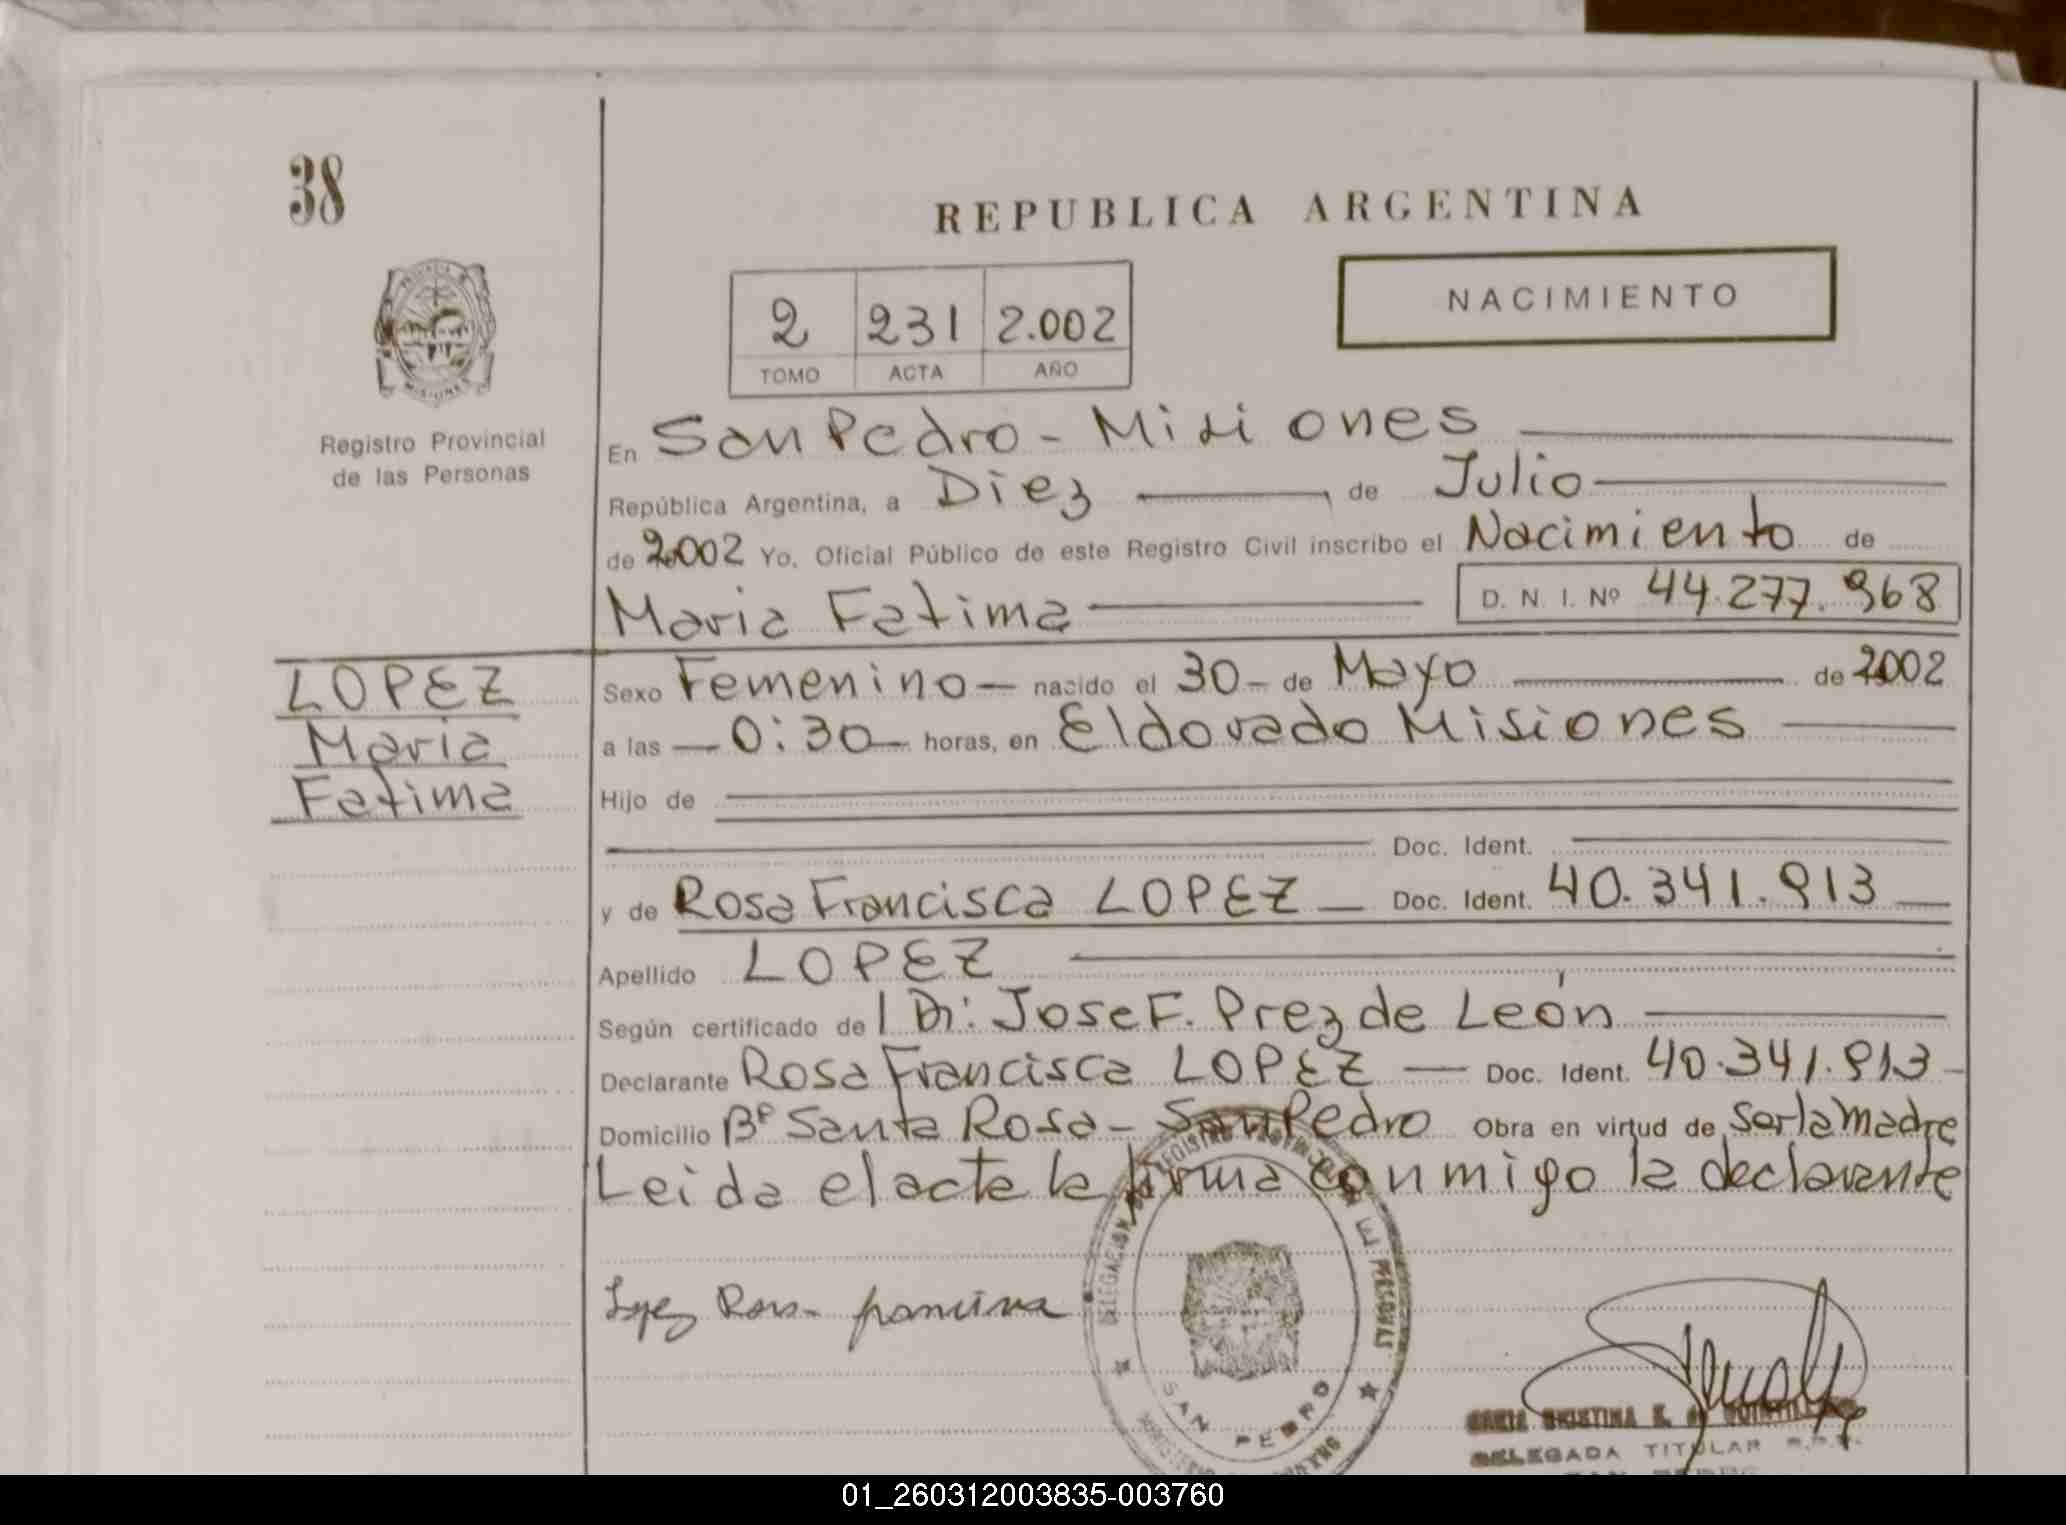 38
REPUBLICA ARGENTINA
NACIMIENTO
2 231 2.002
TOMO ACTA AÑO
Registro Provincial
de las Personas
En San Pedro - Misiones
República Argentina, a Diez de Julio
de 2.002 Yo, Oficial Público de este Registro Civil inscribo el Nacimiento de
Maria Fatima D. N. I. Nº 44.277.968
LOPEZ
Maria
Fatima
Sexo Femenino nacido el 30 de Mayo de 2002
a las 0:30 horas, en Eldorado Misiones
Hijo de
Doc. Ident.
y de Rosa Francisca LOPEZ Doc. Ident. 40.341.913
Apellido LOPEZ
Según certificado de Dr. Jose F. Prez de León
Declarante Rosa Francisca LOPEZ Doc. Ident. 40.341.913
Domicilio Bº Santa Rosa - San Pedro Obra en virtud de ser la madre
Leida el acta la firma conmigo la declarante
Lopez Rosa francisca
DELEGACION REGISTRO PROVINCIAL DE LAS PERSONAS
SAN PEDRO
DELEGADA TITULAR
SAN PEDRO
01_260312003835-003760